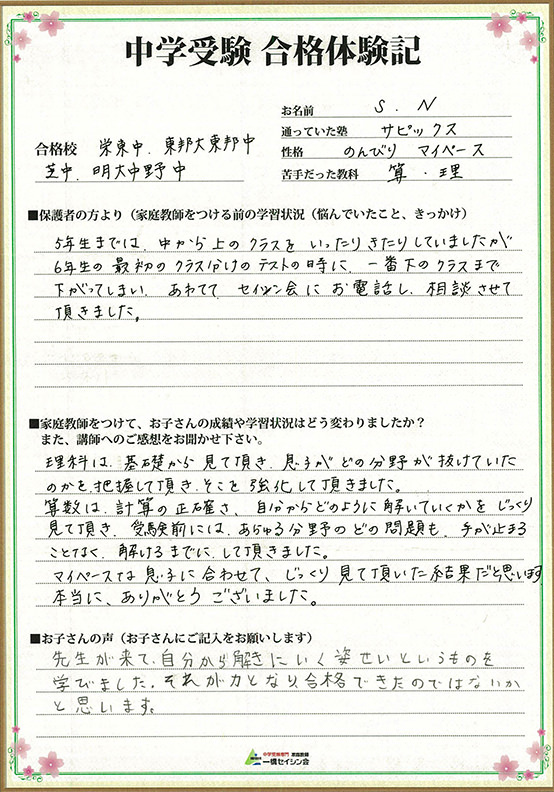 中学受験 合格体験記
お名前 S . N
通っていた塾 サピックス
合格校 栄東中. 東邦大東邦中
芝中. 明大中野中
性格 のんびり マイペース
苦手だった教科 算 ・ 理
■保護者の方より（家庭教師をつける前の学習状況（悩んでいたこと、きっかけ）
5年生までは、中から上のクラスを いったりきたりしていましたが
6年生の最初のクラス分けのテストの時に、一番下のクラスまで
下がってしまい、あわてて、セイシン会にお電話し、相談させて
頂きました。
■家庭教師をつけて、お子さんの成績や学習状況はどう変わりましたか？
また、講師へのご感想をお聞かせ下さい。
理科は、基礎から見て頂き、息子がどの分野が抜けていた
のかを、把握して頂き、そこを強化して頂きました。
算数は、計算の正確さ、自分からどのように解いていくかをじっくり
見て頂き、受験前には、あらゆる分野のどの問題も、手が止まる
ことなく、解けるまでに、して頂きました。
マイペースな息子に合わせて、じっくり見て頂いた結果だと思います
本当に、ありがとうございました。
■お子さんの声（お子さんにご記入をお願いします）
先生が来て、自分から解きにいく姿せいというものを
学びました。それが力となり、合格できたのではないか
と思います。
中学受験専門 家庭教師
一橋セイシン会